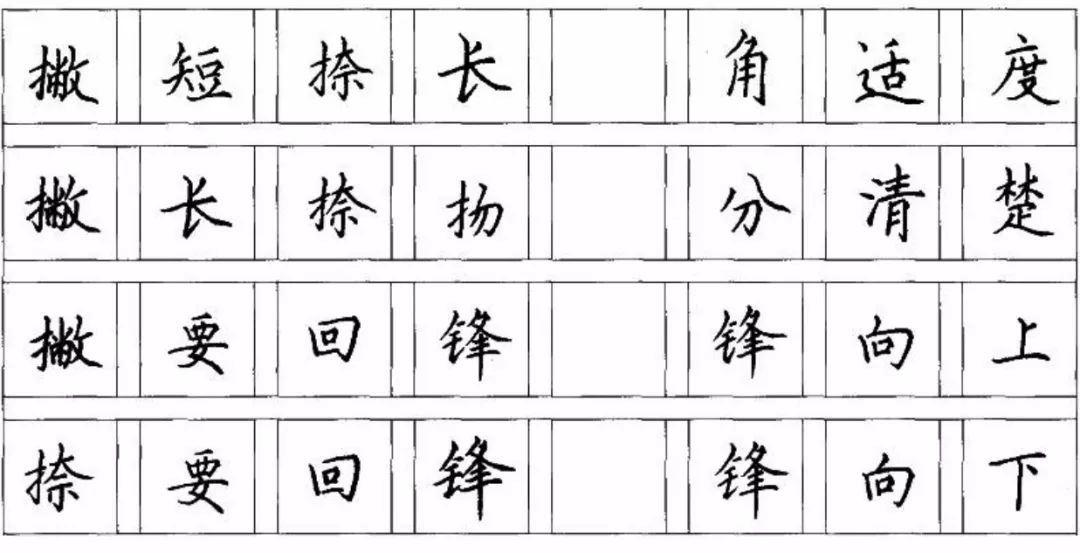 撇短捺长 角适度
撇长捺扬 分清楚
撇要回锋 锋向上
捺要回锋 锋向下